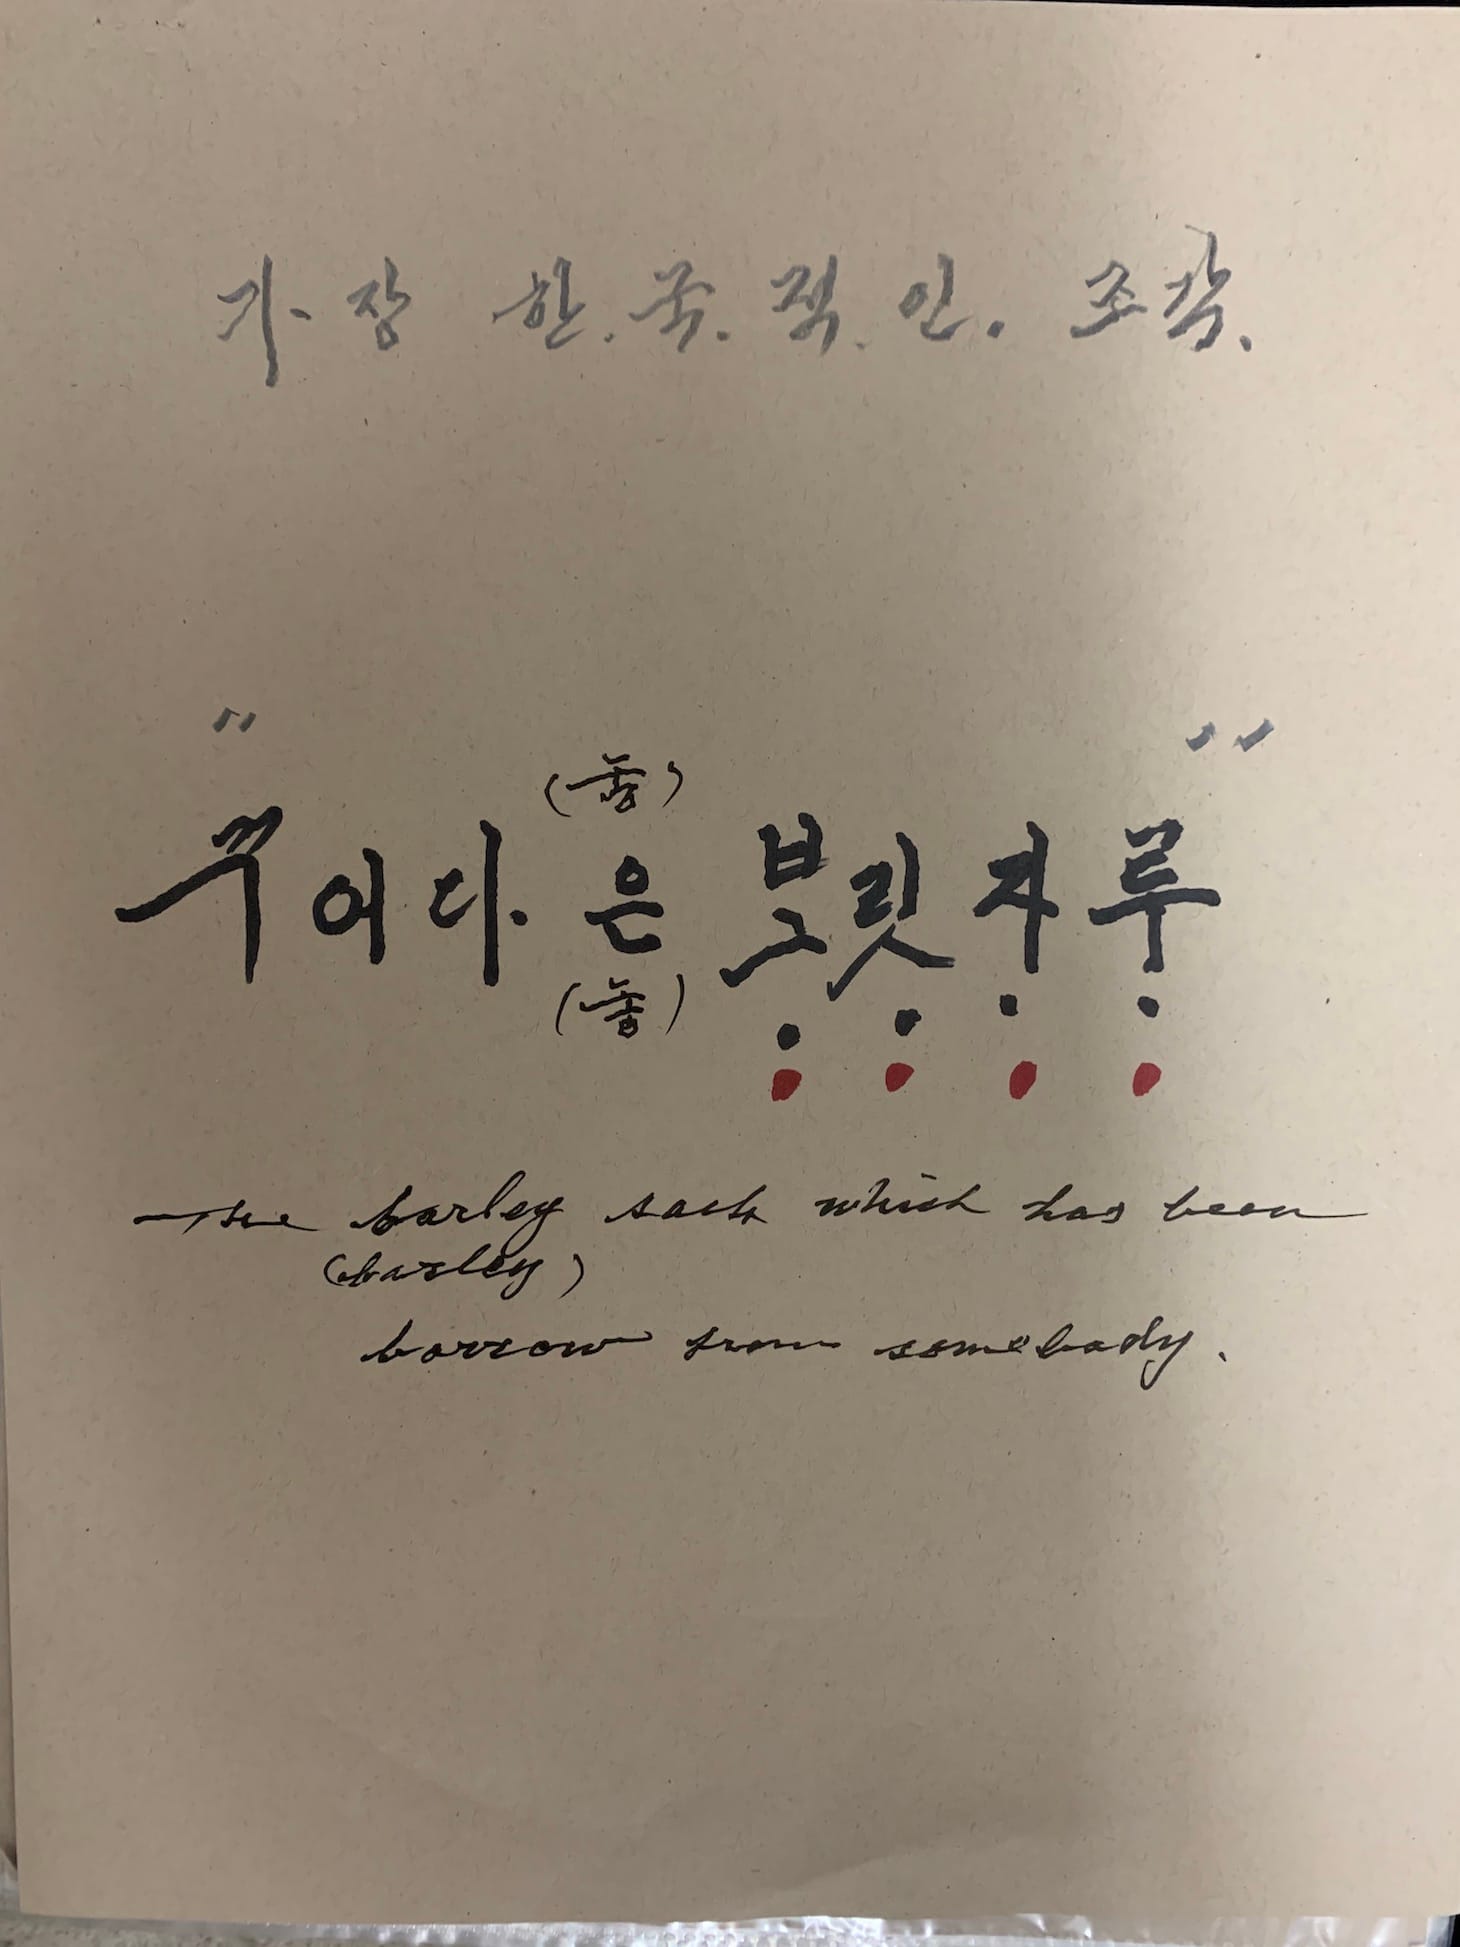 가장 한.국.적.인. 조각.
"
"
(놓)
꾸어다.은 보릿자루
(놓)
the barley sack which has been
(barley)
borrow from somebody.